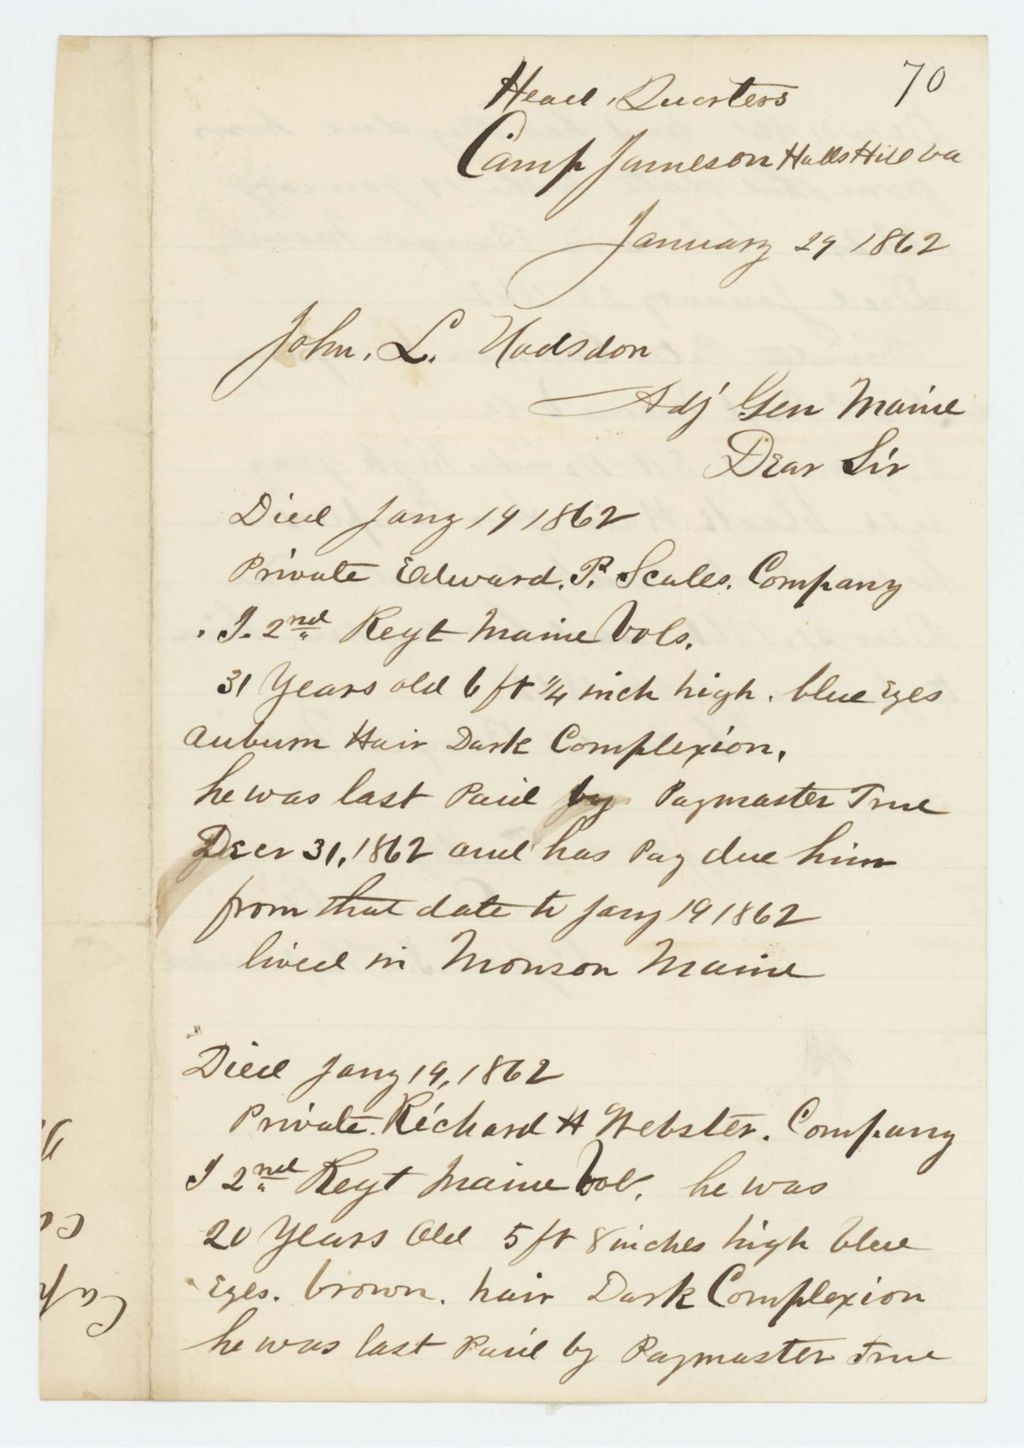 70
Head Quarters
Camp Jameson Halls Hill Va
January 29 1862
John. L. Hodsdon
Adj' Gen Maine
Dear Sir
Died Jany 19 1862
Private Edward. P. Scales. Company
. I. 2nd Regt Maine Vols.
31 Years old 6 ft 1/4 inch high. blue Eyes
auburn Hair Dark Complexion.
he was last Paid by Paymaster True
Decr 31, 1862 and has Pay due him
from that date to Jany 19 1862
lived in Monson Maine
Died Jany 19, 1862
Private. Richard H Webster. Company
I 2nd Regt Maine Vol. he was
20 Years Old 5 ft 8 inches high blue
Eyes. brown. hair Dark Complexion
he was last Paid by Paymaster True